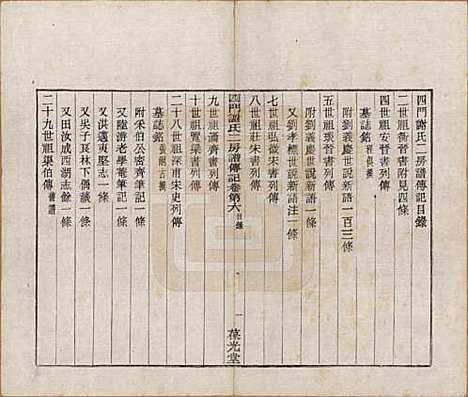 四門謝氏二房譜傳記目錄
四世祖安晉書附見四條
四世祖安晉書列傳
墓誌銘
五世祖琰晉書列傳
附劉義慶世說新語一百三條
附劉義慶世說新語一條
又劉孝標世說新語注一條
七世祖弘微宋書列傳
八世祖莊宋書列傳
四門謝氏二房譜傳記卷第六 目錄
一 葆光堂
九世祖瀹齊書列傳
十世祖覽梁書列傳
二十八世祖深甫宋史列傳
墓誌銘
附采伯公密齋筆記一條
又陸游老學菴筆記一條
又洪邁夷堅志一條
又吳子良林下偶談一條
又田汝成西湖志餘一條
二十九世祖渠伯傳 舊譜